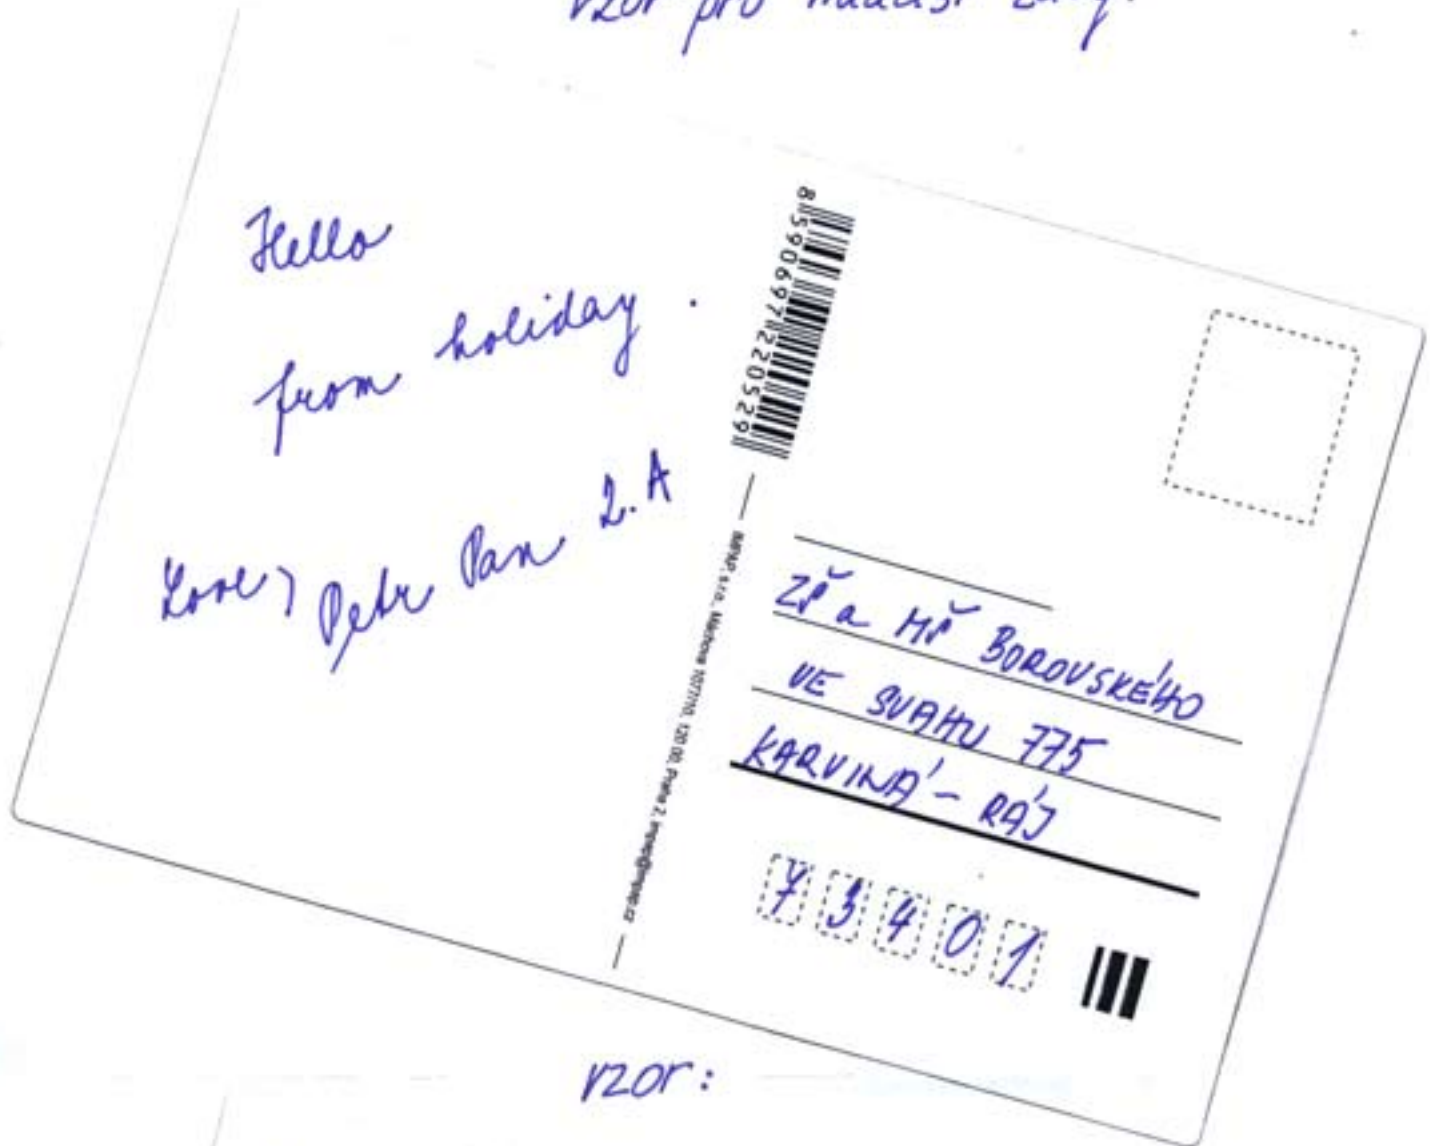 vzor pro mladší žáky:
Hello
from holiday.
Love, Petr Pan 2.A
8590697220529
IMPAP, s.r.o., Máchova 1077/10, 120 00, Praha 2, impap@impap.cz
ZŠ a MŠ BOROVSKÉHO
VE SVAHU 775
KARVINÁ - RÁJ
73401
vzor: